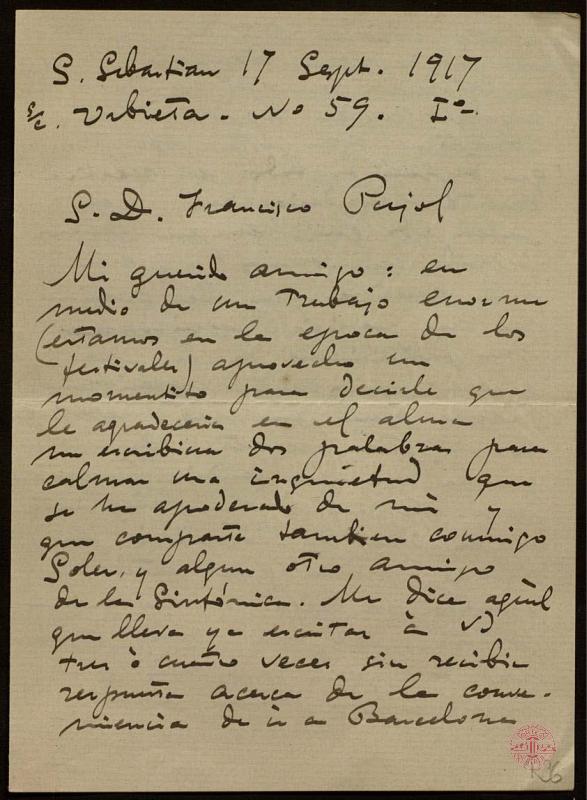 S. Sebastian 17 Sept. 1917
s/c. Urbieta. No 59. Iº.
S. D. Francisco Pujol
Mi querido amigo: en
medio de un trabajo enorme
(estamos en la epoca de los
festivales) aprovecho un
momentito para decirle que
le agradeceria en el alma
me escribiera dos palabras para
calmar una inquietud que
se ha apoderado de mi y
que comparte tambien conmigo
Soler, y algun otro amigo
de la Sinfónica. Me dice aquel
que lleva ya escritas à Vd
tres ò cuatro veces sin recibir
respuesta acerca de la conve-
niencia de ir a Barcelona
R36